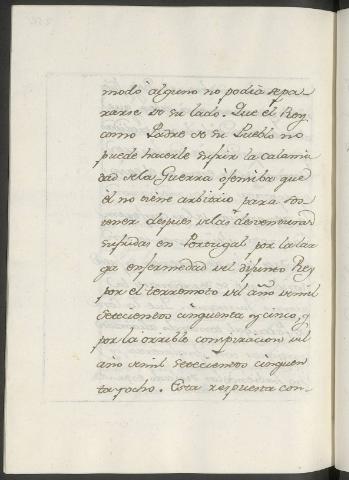 modo alguno no podia sepa
rarse de su lado. Que el Rey
como Padre de su Pueblo no
puede hacerle sufrir la calami
dad de la Guerra ofensiba que
él no tiene arbitrio para sos
tener despues de las desventuras
sufridas en Portugal por la lar
ga enfermedad del difunto Rey
por el terremoto del año de mil
setecientos cinquenta y cinco, y
por la orrible conspiracion del
año de mil setecientos cinquen
ta y ocho. Esta respuesta con-